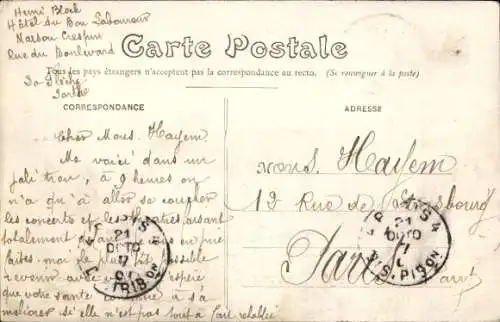 Henri Block
Hôtel du Bon Laboureur
Maison Crespin
Rue du Boulevard
La Flèche
Sarthe
Carte Postale
Tous les pays étrangers n'acceptent pas la correspondance au recto. (Se renseigner à la poste)
CORRESPONDANCE
ADRESSE
Cher Mons. Hayem
Me voici dans un
joli trou, à 9 heures on
n'a qu'à aller se coucher
les concerts et les théâtres
totalement
faites. mais le plus possible
revenir avec
que votre santé continue à s'a
méliorer si elle n'est pas tout à fait rétablie
Mons. Hayem
12 Rue de Strasbourg
Paris
21
OCTO
7
07
21
OCTO
7